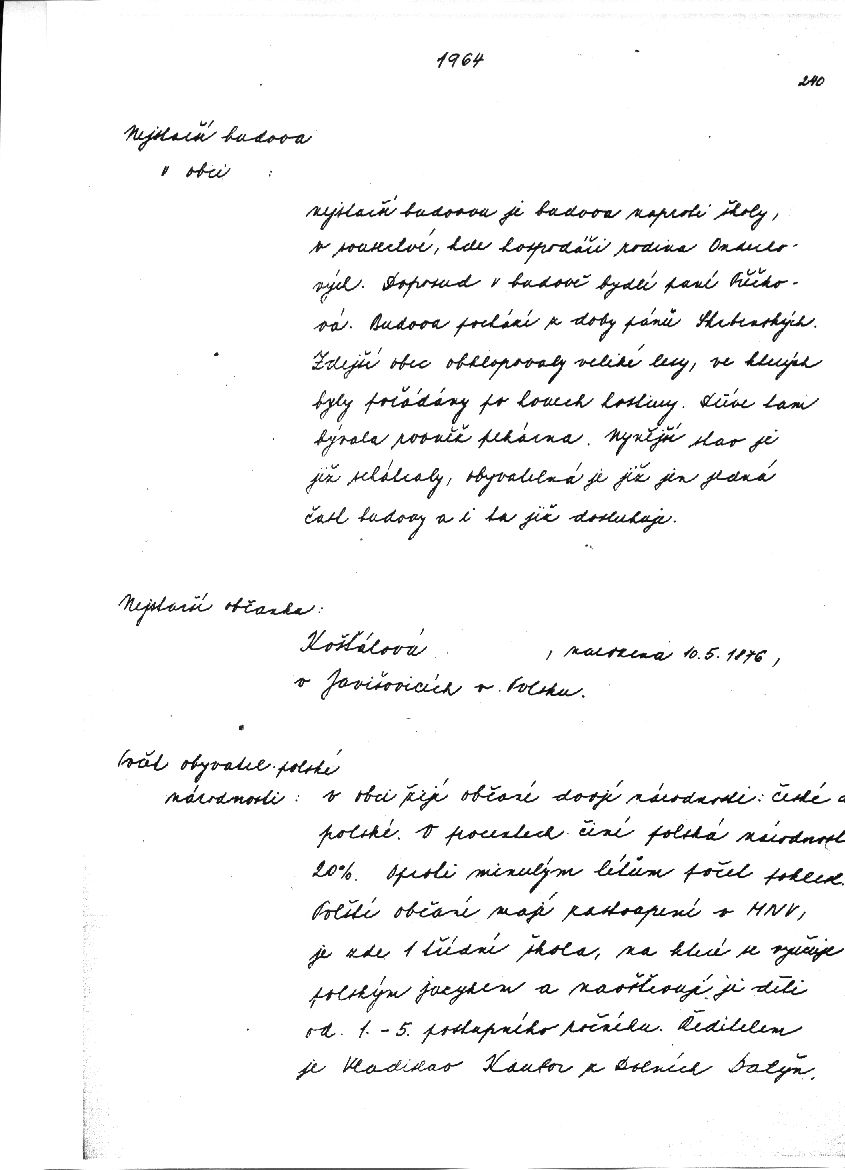 1964
240
Nejstarší budova
v obci :
nejstarší budovou je budova naproti školy,
v sousedství, kde hospodáří rodina Onderko-
vých. Doposud v budově bydlí paní
vá. Budova pochází z doby pánů Skrbenských.
Zdejší obec obklopovaly veliké lesy, ve kterých
byly pořádány po honech hostiny. Dříve tam
bývala rovněž pekárna. Nynější stav je
již zchátralý, obyvatelná je již jen jedná
část budovy a i ta již dosluhuje.
Nejstarší občanka:
Košťálová , narozena 10.5.1876,
v Javišovicích v Polsku.
Počet obyvatel polské
národnosti : v obci žijí občané dvojí národnosti: české a
polské. V procentech činí polská národnost
20%. Oproti minulým létům počet
Polští občané mají zastoupení v MNV,
je zde 1 třídní škola, na které se vyučuje
polským jazykem a navštěvují ji děti
od 1.-5. postupního ročníku. Ředitelem
je Vladislav Kantor z Dolních Datyň.